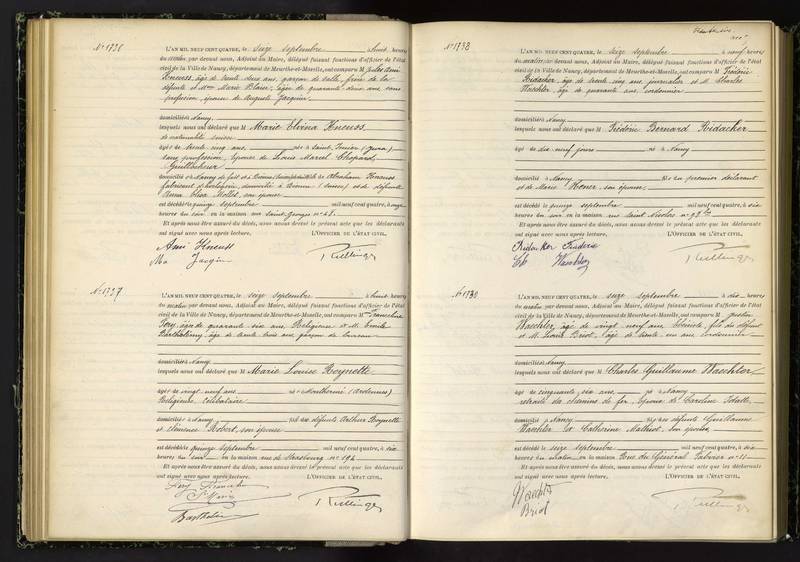 N° 1736
L'AN MIL NEUF CENT QUATRE, le seize septembre à huit heures
du matin par devant nous, Adjoint au Maire, délégué faisant fonctions d'officier de l'état
civil de la Ville de Nancy, département de Meurthe-et-Moselle, ont comparu M Jules Ami
Kneuss, âgé de trente deux ans, garçon de salle, frère de la
défunte et Mme Marie Blaise, âgée de quarante deux ans sans
profession, épouse de Auguste Jacquin
domiciliés à Nancy
lesquels nous ont déclaré que M Marie Elvina Kneuss
de nationalité suisse
âgée de trente cinq ans née à Saint Imier (Jura)
sans profession, épouse de Louis Marcel Chopard,
Guillocheur
domiciliée à Nancy de fait et à de Abraham Kneuss
fabricant d'horlogerie, domicilié à (Suisse) et de défunte
Anna Elise Mollet, son épouse
est décédée quinze septembre mil neuf cent quatre, à onze
heures du soir en la maison rue Saint Georges n° 48
Et après nous être assuré du décès, nous avons dressé le présent acte que les déclarants
ont signé avec nous après lecture. L'OFFICIER DE L'ÉTAT CIVIL,
Ami Kneuss
Jacquin
N° 1737
L'AN MIL NEUF CENT QUATRE, le seize septembre à huit heures
du matin par devant nous, Adjoint au Maire, délégué faisant fonctions d'officier de l'état
civil de la Ville de Nancy, département de Meurthe-et-Moselle, ont comparu M Franceline
Fery, âgée de quarante six ans Religieuse et M. Emile
Barthélemy âgé de trente trois ans, garçon de bureau
domiciliés à Nancy
lesquels nous ont déclaré que M Marie Louise Beynette
âgée de vingt neuf ans née à Monthermé (Ardennes)
Religieuse, Célibataire
domiciliée à Nancy fille de défunts Arthur Beynette
et Clémence Robert, son épouse
est décédée quinze septembre mil neuf cent quatre, à six
heures du soir en la maison rue de Strasbourg n° 194
Et après nous être assuré du décès, nous avons dressé le présent acte que les déclarants
ont signé avec nous après lecture. L'OFFICIER DE L'ÉTAT CIVIL,
N° 1738
L'AN MIL NEUF CENT QUATRE, le seize septembre à neuf heures
du matin par devant nous, Adjoint au Maire, délégué faisant fonctions d'officier de l'état
civil de la Ville de Nancy, département de Meurthe-et-Moselle, ont comparu M Frédéric
Ridacker, âgé de trente cinq ans, journalier et M. Charles
Waechter, âgé de quarante ans, cordonnier
domiciliés à Nancy
lesquels nous ont déclaré que M Frédéric Bernard Ridacker
âgé de dix neuf jours né à Nancy
domicilié à Nancy fils du premier déclarant
et de Marie Koner, son épouse
est décédé le quinze septembre mil neuf cent quatre, à six
heures du soir en la maison rue Saint Nicolas n° 98 bis
Et après nous être assuré du décès, nous avons dressé le présent acte que les déclarants
ont signé avec nous après lecture. L'OFFICIER DE L'ÉTAT CIVIL,
Ridacker Frédéric
Ch Waechter
N° 1739
L'AN MIL NEUF CENT QUATRE, le seize septembre à dix heures
du matin par devant nous, Adjoint au Maire, délégué faisant fonctions d'officier de l'état
civil de la Ville de Nancy, département de Meurthe-et-Moselle, ont comparu M Justin
Waechter, âgé de vingt neuf ans Ebéniste, fils du défunt
et M. Louis Briot, âgé de trente un ans cordonnier
domiciliés à Nancy
lesquels nous ont déclaré que M Charles Guillaume Waechter
âgé de cinquante six ans né à Nancy
retraité des chemins de fer, époux de Caroline
domicilié à Nancy fils de défunts Guillaume
Waechter et Catherine Mathiot, son épouse
est décédé le seize septembre mil neuf cent quatre, à six
heures du matin en la maison Rue du Général Fabvier n° 11
Et après nous être assuré du décès, nous avons dressé le présent acte que les déclarants
ont signé avec nous après lecture. L'OFFICIER DE L'ÉTAT CIVIL,
Waechter
Briot